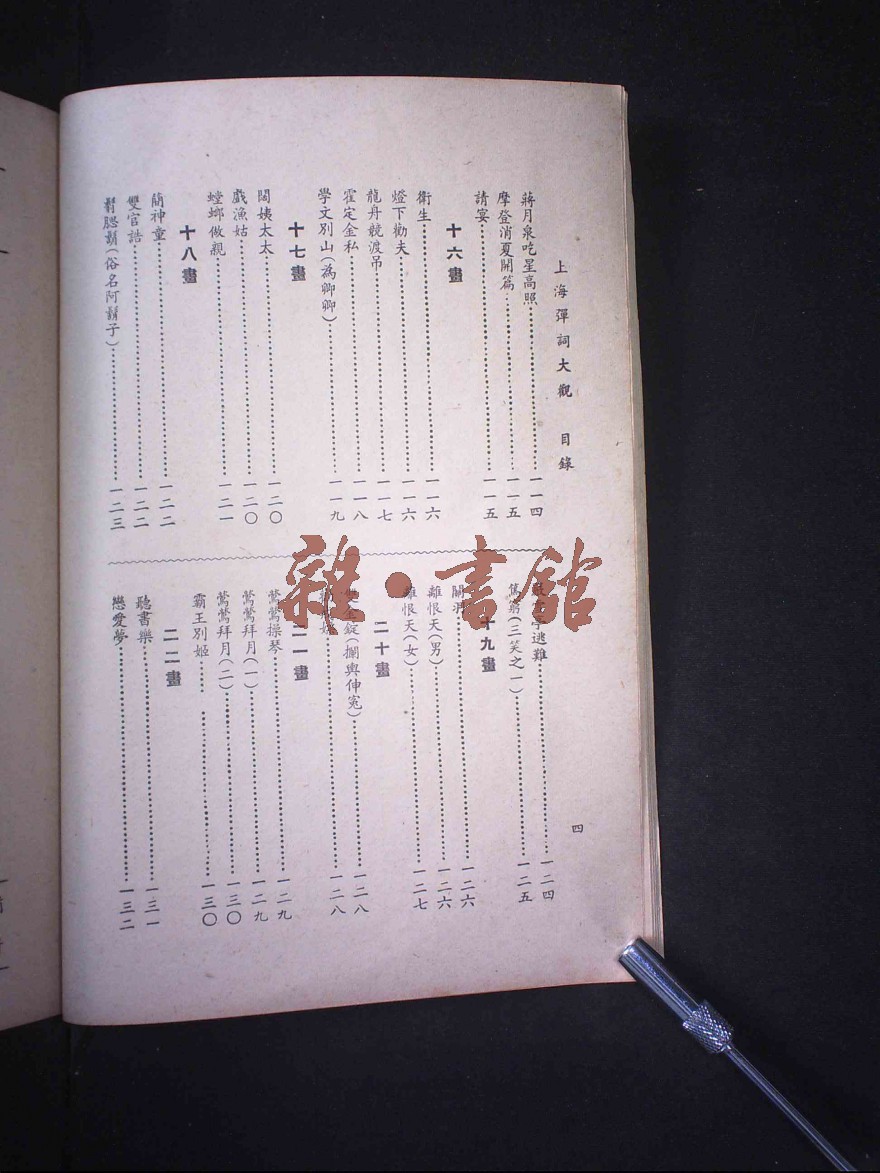 上海彈詞大觀 目錄
四
蔣月泉吃星高照 一一四
摩登消夏開篇 一一五
請宴 一一五
十六畫
衛生 一一六
燈下勸夫 一一六
龍舟競渡吊 一一七
霍定金私 一一八
學文別山(為卿卿) 一一九
十七畫
闊姨太太 一二〇
戲漁姑 一二〇
螳螂做親 一二一
十八畫
簡神童 一二二
雙官誥 一二二
鬍(俗名阿鬍子) 一二三
亭逃難 一二四
(三笑之一) 一二五
十九畫
一二六
離恨天(男) 一二六
離恨天(女) 一二七
二十畫
金錠(攔輿伸冤) 一二八
一二八
二一畫
鶯鶯操琴 一二九
鶯鶯拜月(一) 一二九
鶯鶯拜月(二) 一三〇
霸王別姬 一三〇
二二畫
聽書樂 一三一
戀愛夢 一三二
雜·書館